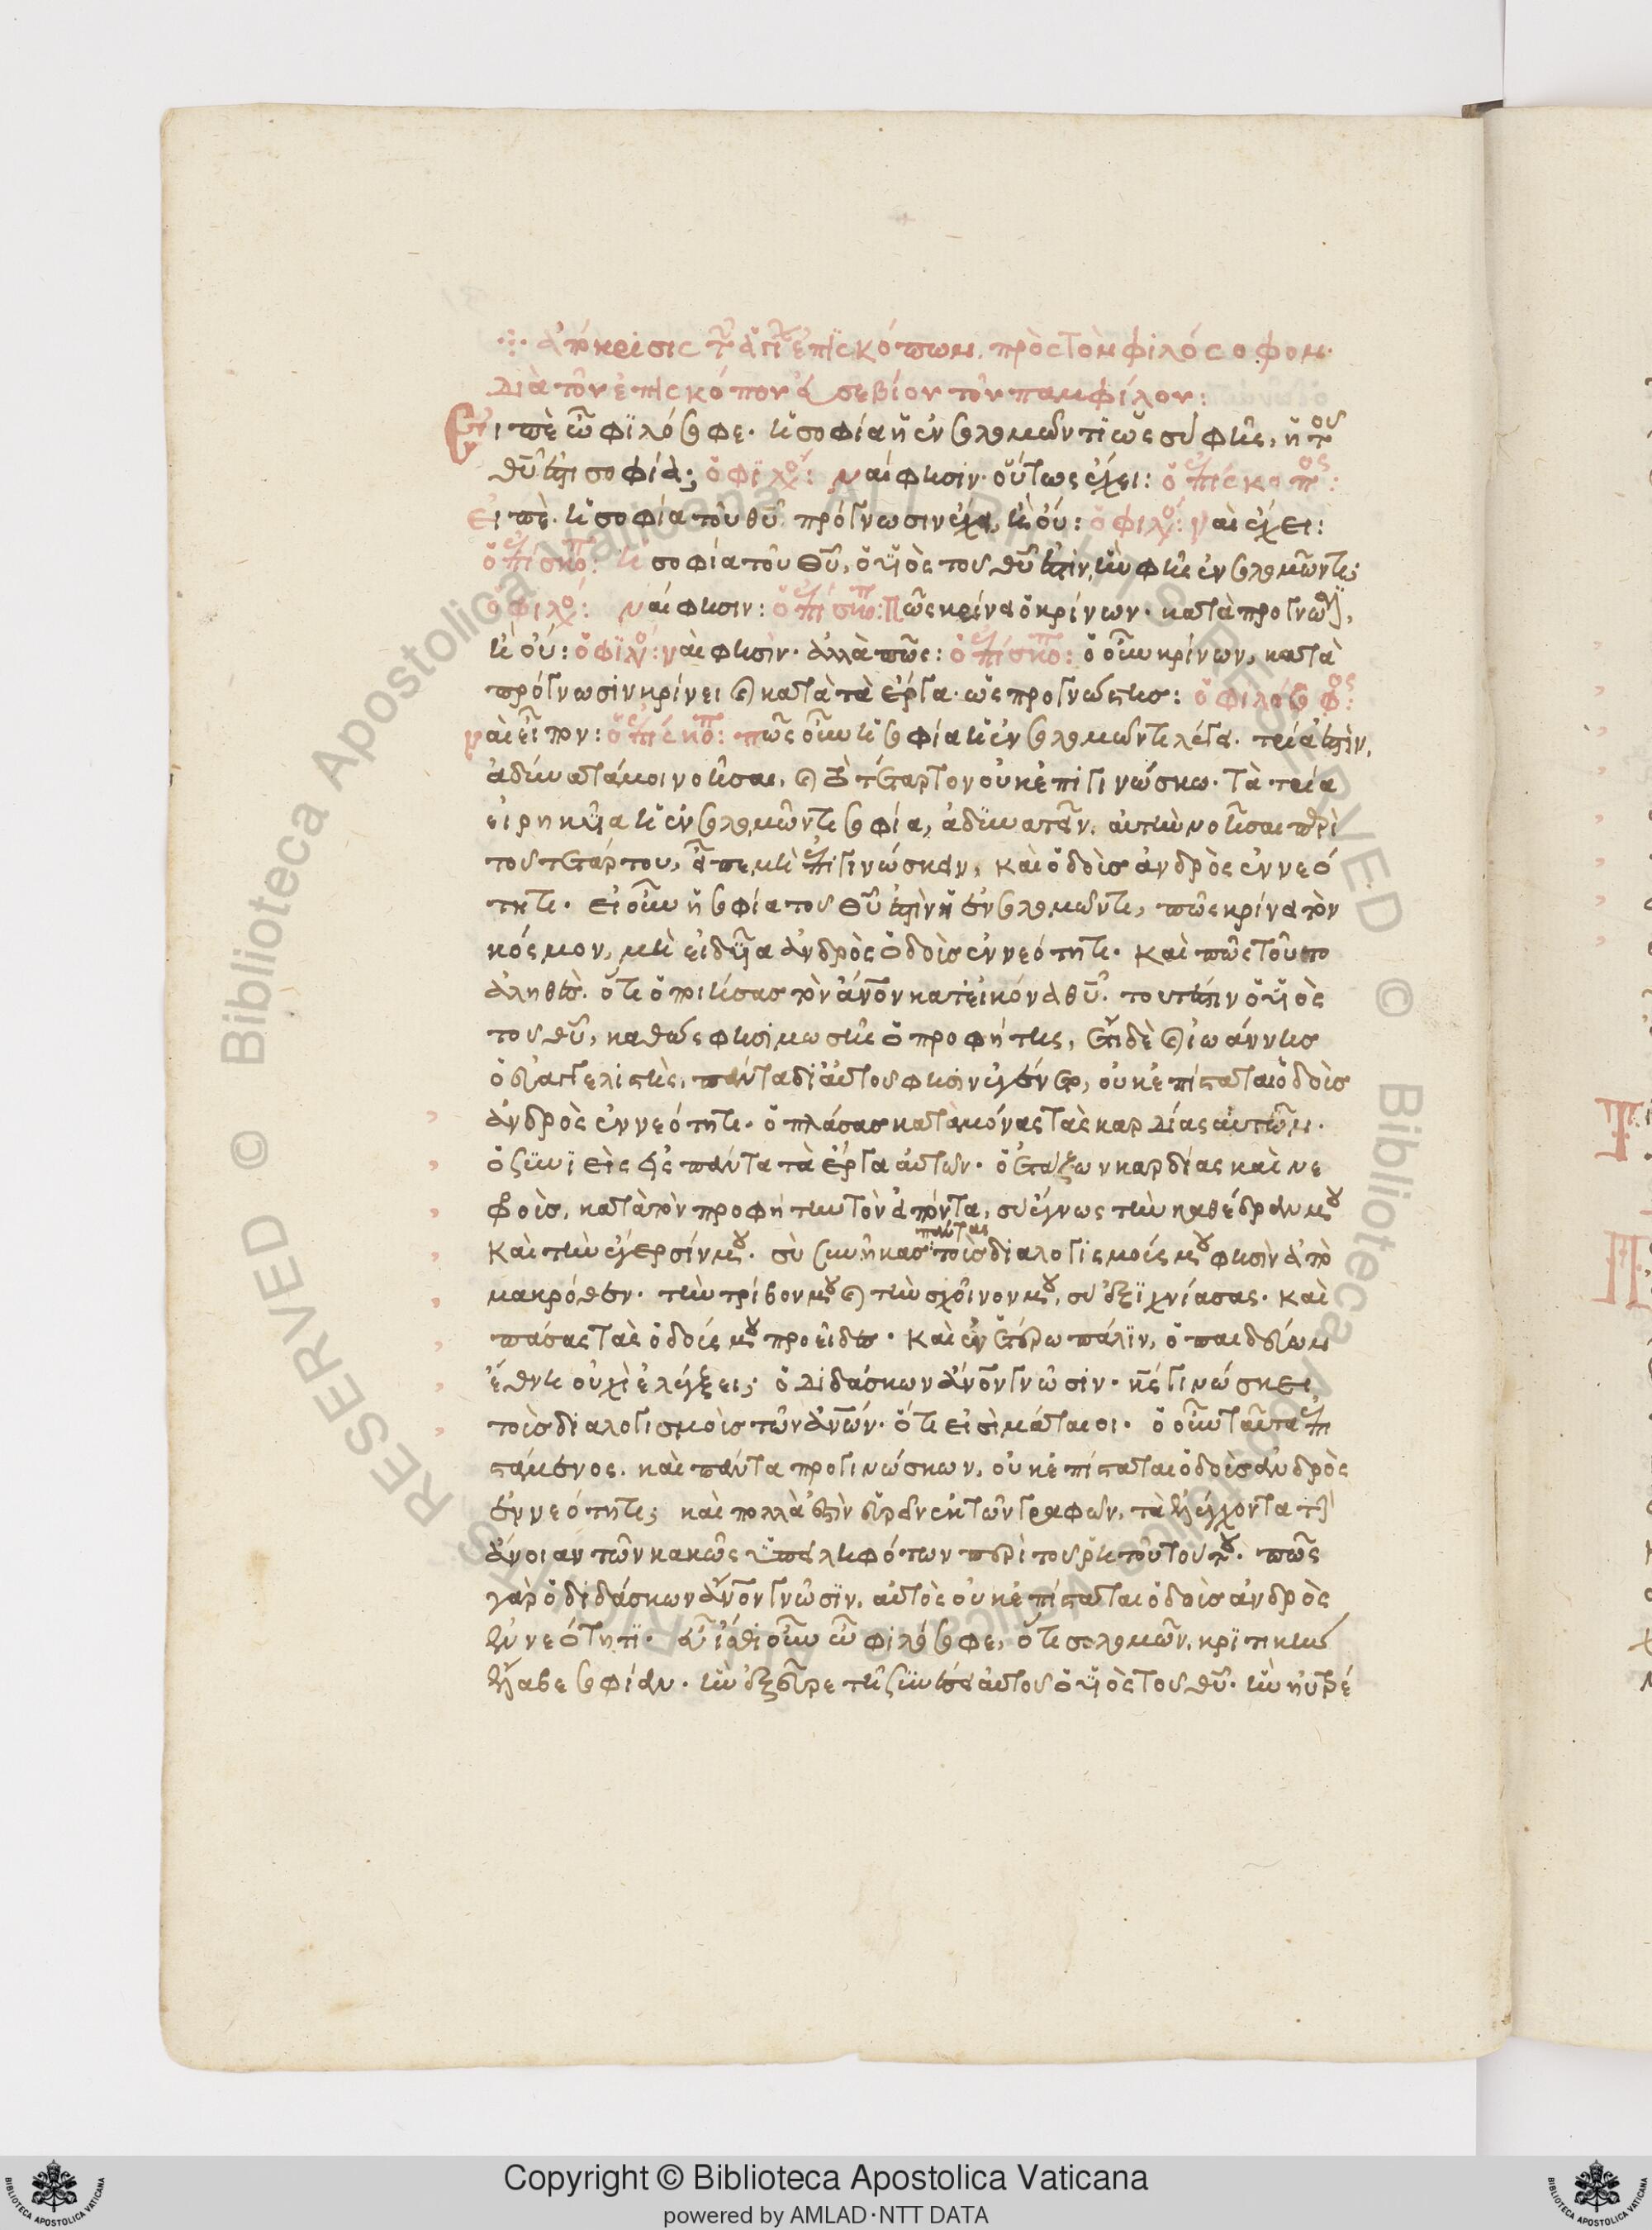 ἀπόκρισις τῶν ἁγί ἐπισκόπων πρὸς τὸν φιλόσοφον·
διὰ τοῦ ἐπισκόπου εὐσεβίου τοῦ παμφίλου:
Εἰπὲ ὦ φιλόσοφε· ἡ σοφία ἡ ἐν σολομῶντι ὡς σὺ φῂς, ἡ τοῦ
θῦ ἐστι σοφία; ὁ φιλό: ναί φησιν· οὕτως ἔχει: ὁ ἐπίσκοπος:
εἰπὲ· ἡ σοφία τοῦ θῦ πρόγνωσιν ἔχει, ἢ οὔ: ὁ φιλό: ναὶ ἔχει:
ὁ ἐπίσκοπ: ἡ σοφία τοῦ θῦ, ὁ υἱὸς τοῦ θῦ ἐστὶν, ἣν φῂς ἐν σολομῶντι;
ὁ φιλό: ναί φησιν: ὁ ἐπίσκοπ: πῶς κρίνει ὁ κρίνων· κατὰ πρόγνωσιν,
ἢ οὔ: ὁ φιλό: ναὶ φησὶν· ἀλλὰ πῶς: ὁ ἐπίσκοπ: ὁ οὖν κρίνων, κατὰ
πρόγνωσιν κρίνει καὶ κατὰ τὰ ἔργα· ὡς προγνώστης: ὁ φιλόσοφος:
ναὶ εἶπον: ὁ ἐπίσκοπ: πῶς οὖν ἡ σοφία ἡ ἐν σολομῶντι λέγει· τρία ἐστὶν,
ἀδύνατά μοι νοῆσαι, καὶ τὸ τέταρτον οὐκ ἐπιγινώσκω· τὰ τρία
εἰρηκυῖα ἡ ἐν σολομῶντι σοφία, ἀδυνατεῖν αὐτὴν νοῆσαι περὶ
τοῦ τετάρτου, εἶπε μὴ ἐπιγινώσκειν, καὶ ὁδοὺς ἀνδρὸς ἐν νεό
τητι· εἰ οὖν ἡ σοφία τοῦ θῦ ἐστὶν ἡ ἐν σολομῶντι, πῶς κρίνει τὸν
κόσμον, μὴ εἰδυῖα ἀνδρὸς ὁδοὺς ἐν νεότητι· καὶ πῶς τοῦτο
ἀληθὲς· ὅτι ὁ ποιήσας τὸν ἄνον κατ' εἰκόνα θῦ· τουτέστιν ὁ υἱὸς
τοῦ θῦ, καθώς φησι μωσῆς ὁ προφήτης, ἔτι δὲ καὶ ἰωάννης
ὁ εὐαγγελιστὴς, πάντα δι' αὐτοῦ φησιν ἐγένετο, οὐκ ἐπίσταται ὁδοὺς
ἀνδρὸς ἐν νεότητι· ὁ πλάσας κατὰ μόνας τὰς καρδίας αὐτῶν·
ὁ συνϊεὶς εἰς πάντα τὰ ἔργα αὐτῶν· ὁ ἐτάζων καρδίας καὶ νε
φροὺς, κατὰ τὸν προφήτην τὸν εἰπόντα, σὺ ἔγνως τὴν καθέδραν μου
καὶ τὴν ἔγερσίν μου· σὺ συνῆκας πάντας τοὺς διαλογισμούς μου φησὶν ἀπὸ
μακρόθεν· τὴν τρίβον μου καὶ τὴν σχοῖνον μου, σὺ ἐξιχνίασας· καὶ
πάσας τὰς ὁδούς μου προεῖδες· καὶ ἐν ἑτέρω πάλιν, ὁ παιδεύων
ἔθνη οὐχὶ ἐλέγξει; ὁ διδάσκων ἄνον γνῶσιν· κς γινώσκει
τοὺς διαλογισμοὺς τῶν ἀνων· ὅτι εἰσὶ μάταιοι· ὁ οὖν ταῦτα ἐπι
στάμενος· καὶ πάντα προγινώσκων, οὐκ ἐπίσταται ὁδοὺς ἀνδρὸς
ἐν νεότητι; καὶ πολλὰ ἐστὶν εὑρεῖν ἐκ τῶν γραφῶν, τὰ ἐλέγχοντα τὴν
ἄνοιαν τῶν κακῶς ὑπειληφότων περὶ τοῦ ῥητοῦ τούτου· πῶς
γὰρ ὁ διδάσκων ἄνον γνῶσιν, αὐτὸς οὐκ ἐπίσταται ὁδοὺς ἀνδρὸς
ἐν νεότητι· εὖ ἴσθι οὖν ὦ φιλόσοφε, ὅτι σολομῶν, κριτικὴν
ἔλαβε σοφίαν· ἣν ἐξεῦρε τῇ συνέσει αὐτοῦ ὁ υἱὸς τοῦ θῦ· ἣν ηὐτρέ